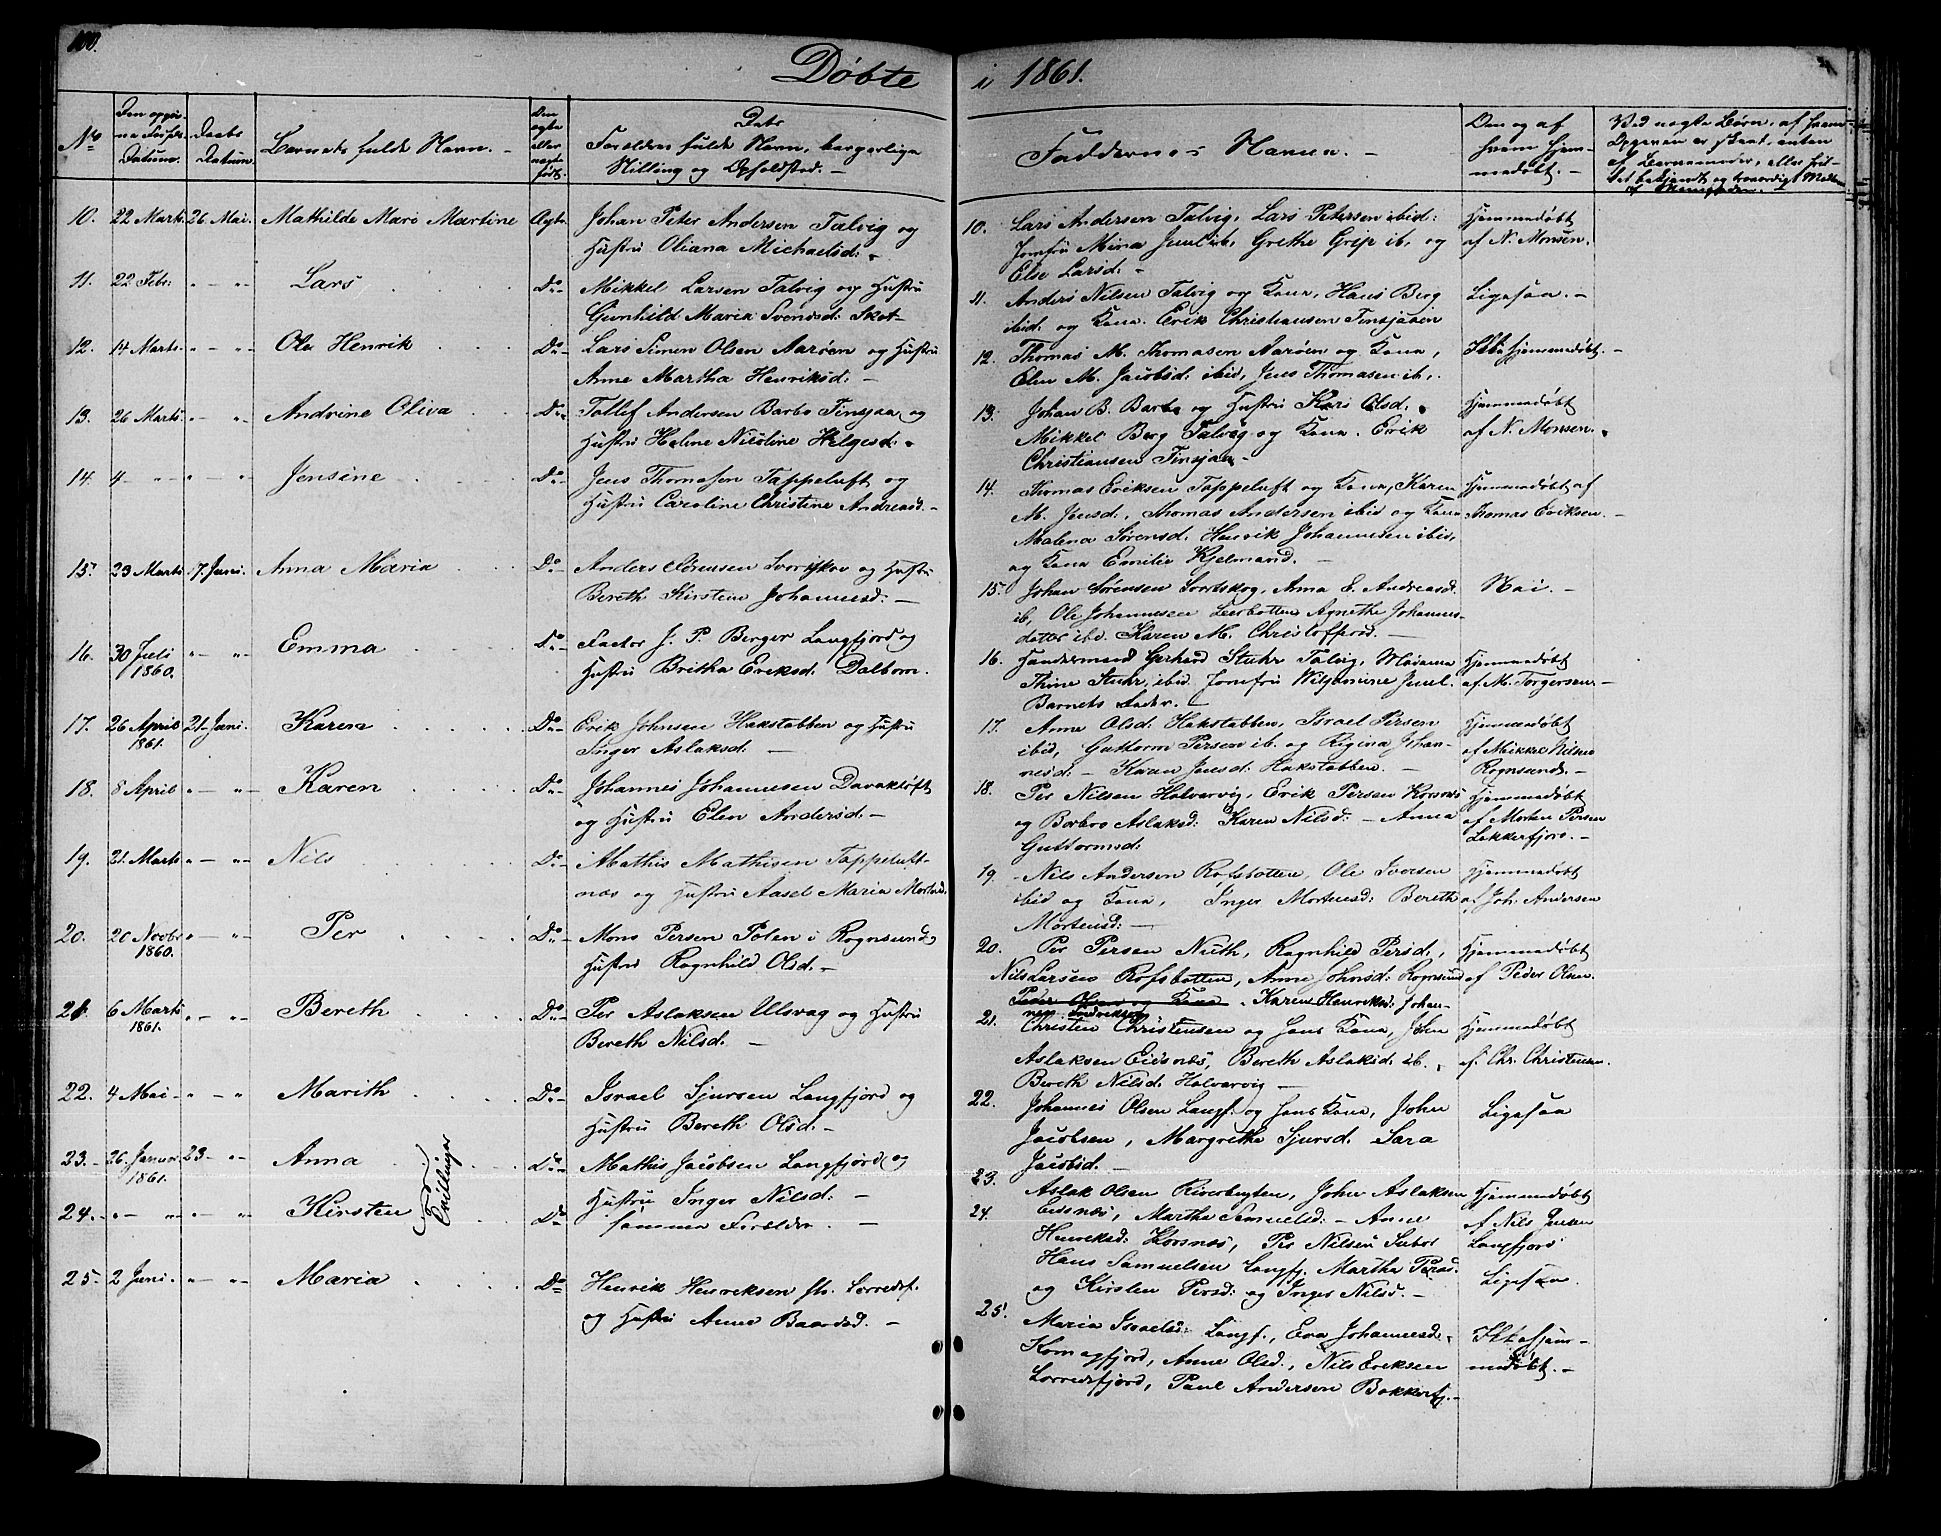 100.
Døbte i 1861.
No
Døbte Datum.
Barnets fulde Navn. -
Forældres fulde Navn, borgerlige
Stilling og Opholdsted. -
Faddernes Navne. -
10. 22 Marts 26 Mai. Mathilde Mare Martine Ægte Johan Peter Andersen Talvig og
Hustru Oliana Michaelsd: -
11. 22 Febr: " - " - Lars Do - Mikkel Larsen Talvig og Hustru
Gunhild Maria Svendsd: Skot-
12. 14 Marts " - " - Ole Henrik Do - Lars Simon Olsen Aarøen og Hustru
Anne Martha Henriksd: -
13. 26 Marts " - " Andrine Oliva Do - Tollef Andersen Barbo Tinsjaa og
Hustru Heline Nicoline Helgesd: -
14. 4 " - " " - " Jensine Do - Jens Thomasen Tappeluft og
Hustru Caroline Christine Andreasd. -
15. 23 Marts 17 Juni. Anna Maria Do - Anders Sörensen Svortskov og Hustru
Bereth Kirsten Johannesd: -
16. 30 Juli " - " - Emma Do - Factor J. P. Berger Langfjord og
1860. Hustru Britha Eriksd. Dalborn.
17. 26 April 21 Juni. Karen Do - Erik Johnsen Hakstabben og Hustru
1861. Inger Aslaksd. -
18. 8 April " - " - Karen Do - Johannes Johannesen Davakløft
og Hustru Elen Andersd. -
19. 21. Marts " - " - Nils Do - Mathis Mathisen Tappeluft-
næs og Hustru Aasel Maria Mortensd.
20. 20 Novbr " - " - Per Do - Mons Persen Polen i Rognsund,
1860. Hustru Ragnhild Olsd. -
21. 6 Marts " - " - Bereth Do - Per Aslaksen Ulsvag og Hustru
1861. Bereth Nilsd. -
22. 4 Mai " - " Marith Do - Israel Sjursen Langfjord og
Hustru Bereth Olsd. -
23. - 26. Januar 23 - " - Anna Do - Mathis Jacobsen Langfjord og
1861. Hustru Inger Nilsd: -
24. - " - " " - " Kirsten Do samme Forældre. -
Tvillinger
25 - 2 Juni. " - " Maria Do Henrik Henriksen St. Lerredsf.
og Hustru Anne Baardsd. -
10. Lars Andersen Talvig, Lars Petersen ibid: Hjemmedøbt
Jomfru Mina Juul ib, Grethe Grip ib, og af N. Monsen.
Else Larsd: -
11. Anders Nilsen Talvig og Kone, Hans Berg Ligesaa. -
ibid. og Kone. Erik Christiansen Tinsjaaen
12. Thomas M. Thomasen Aarøen og Kone, Ikke hjemmedøbt. -
Elen M. Jacobsd. ibid, Jens Thomasen ib,.
13. Johan B. Barbo og Hustru Kari Olsd. Hjemmedøbt
Mikkel Berg Talvig og Kone. Erik af N. Monsen.
Christiansen Tinsjaa -
14. Thomas Eriksen Tappeluft og Kone, Karen Hjemmedøbt af
M. Jensd., Thomas Andersen ibid og Kone Thomas Eriksen. -
Malena Sørensd. Henrik Johannesen ibid,
og Kone Emilie Kjelmand. -
15. Johan Sørensen Svortskog, Anna E. Andreasd. Nei. -
ib, Ole Johannesen Leerbotten Agnethe Johannes-
datter ibid. Karen M. Christoffersd. -
16. Handelsmand Gerhard Stuhr Talvig, Madame Hjemmedøbt
Thine Stuhr, ibid. Jomfru Wilhelmine Juul. af M. Torgersen. -
Barnets Fader.
17. Anne Olsd. Hakstabben, Israel Persen Hjemmedøbt
ibid, Guttorm Persen ib. og Regina Johan- af Mikkel Nilsen
nesd. - Karen Jensd: Hakstabben. - Rognsund. -
18. Per Nilsen Halvarvig, Erik Persen Korsnæs Hjemmedøbt
og Borbro Aslaksd: Karen Nilsd. - Anna af Morten Persen
Guttormsd: Lakkerfjord. -
19. Nils Andersen Rafsbotten, Ole Iversen Hjemmedøbt
ibid og Kone, Inger Mortensd: Bereth af Joh. Andersen
Mortensd: -
20. Per Persen Nuth, Ragnhild Persd., Hjemmedøbt
Nils Larsen Rafsbotten, Anne Johnsd: Rognsund af Peder Olsen.
Peder Olsen og Kone. Karen Henriksd: Johan-
nes Fredriksen
21. Christen Christensen og hans Kone, John Hjemmedøbt
Aslaksen Eidsnæs, Bereth Aslaksd. ib. af Chr. Christensen.
Bereth Nilsd. Halvarvig -
22. Johannes Olsen Langf. og hans Kone, John Ligesaa
Jacobsen, Margrethe Sjursd. Sara
Jacobsd. -
23. Aslak Olsen Riverbugten, John Aslaksen Hjemmedøbt
24. Eidsnæs, Martha Samuelsd: - Anne af Nils Jensen
Henriksd: Korsnæs, Per Nilsen Langfjord
Hans Samuelsen Langfj. Martha Persd. Ligesaa.
og Kirsten Persd: og Inger Nilsd. -
25. Maria Israelsd: Langf., Eva Johannesd. Ikke hjem-
Komagfjord, Anne Olsd., Nils Eriksen medøbt. -
Lerredsfjord, Paul Andersen Bokkerfj. -